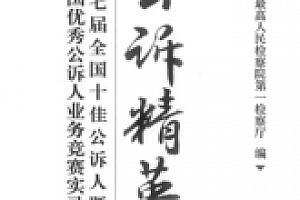 最高人民检察院第一检察厅 编
公诉精英
七届全国十佳公诉人暨
国优秀公诉人业务竞赛实录